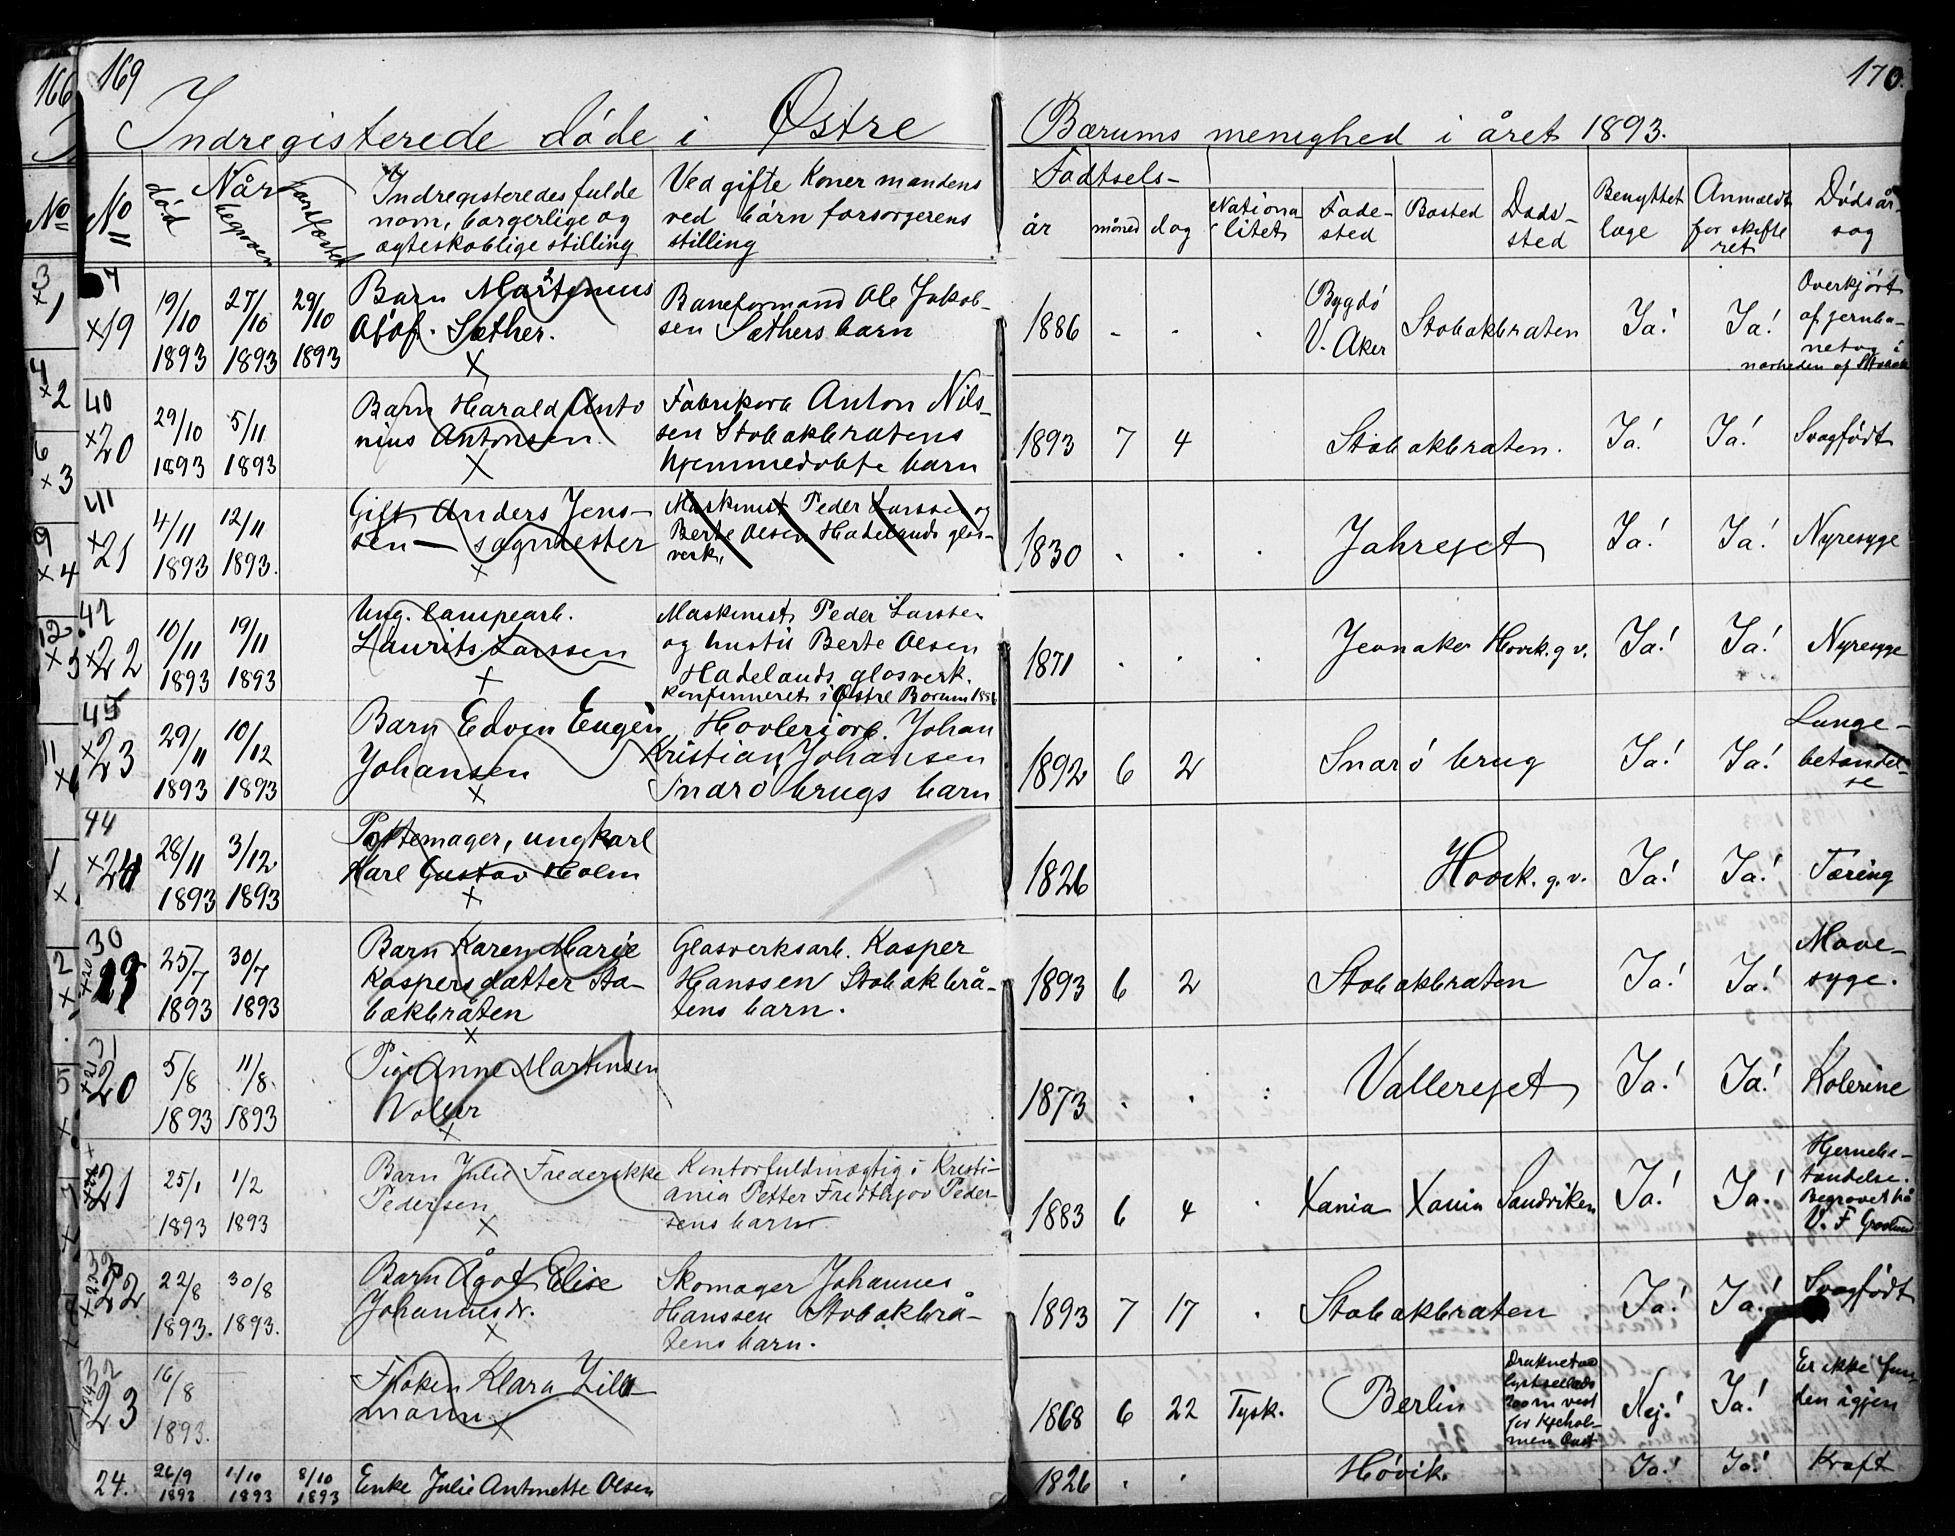 166 169 170.
Indregisterede døde i Østre Bærums menighed i året 1893.
No No død Når begraven Indregisteredes fulde navn, borgerlige og ægteskablige stilling
Ved gifte Koner mandens ved børn forsørgerens stilling
Fødtsels- år måned dag Nationalitet Fødested Bosted Dødssted Benyttet læge Anmældt for skifteret Dødsårsag
19 19/10 1893 27/10 1893 29/10 1893 Barn Martinius Olaf Sæther. Baneformand Ole Jakobsen Sæthers barn
1886 - . . Bygdø V. Aker Stabækbraten Ja! Ja! Overkjørt af jernbanetog i nærheden af Stabæk
40 20 29/10 1893 5/11 1893 Barn Harald Antonius Antonsen. Fabrikarb Anton Nilssen Stabækbratens hjemmedøbte barn
1893 7 4 Stabækbraten. Ja! Ja! Svagfødt
41 21 4/11 1893 12/11 1893. Gift Anders Jenssen — sagmester Maskinist Peder Larssen og Berte Olsen Hadelands glasverk.
1830 . . . Jahreget Ja! Ja! Nyresyge
42 22 10/11 1893 19/11 1893 Ung. lampearb. Laurits Larssen Maskinist Peder Larssen og hustru Berte Olsen Hadelands glasverk. Konfirmeret i Østre Bærum
1871 . . . Jevnaker Høvik. g v. Ja! Ja! Nyresyge
23 29/11 1893 10/12 1893 Barn Edvin Eugen Johansen Høvleriarb. Johan Kristian Johansen Snarø brugs barn
1892 6 2 Snarø brug Ja! Ja! Lungebetændelse
44 24 28/11 1893 3/12 1893 Pottemager, ungkarl Karl Gustav Holm
1826 Høvik. g. v. Ja! Ja! Tæring
30 19 25/7 1893 30/7 1893 Barn Karen Marie Kaspersdatter Stabækbraten Glasverksarb. Kasper Hanssen Stabækbråtens barn.
1893 6 2 Stabækbraten Ja! Ja! Mavesyge.
31 20 5/8 1893 11/8. 1893 Pige Anne Martinsen Voller
1873 . . : Vallereget Ja! Ja! Kolerine
21 25/1 1893 1/2 1893 Barn Julie Frederikke Pedersen Kontorfuldmægtig i Kristiania Petter Fredthjov Pedersens barn
1883 6 4 . Xania Xania Sandviken Ja! Ja! Hjernebetændelse. Begravet på V. F Gravlund
22 22/8 1893. 30/8 1893. Barn Ågot Elise Johannesdr. Skomager Johannes Hanssen Stabækbråtens barn.
1893 7 17 . Stabækbraten Ja! Ja! Svagfødt
32 23 16/8 1893. Frøken Klara Zillmann
1868 6 22 Tysk. Berlin Druknet lystseilads 200 m vest for Kjeholmen Nej! Ja! Er ikke funden igjen
24. 26/9 1893 1/10 1893 8/10 1893 Enke Julie Antonette Olsen
1826 . . Høvik. Ja! Ja! Kræft